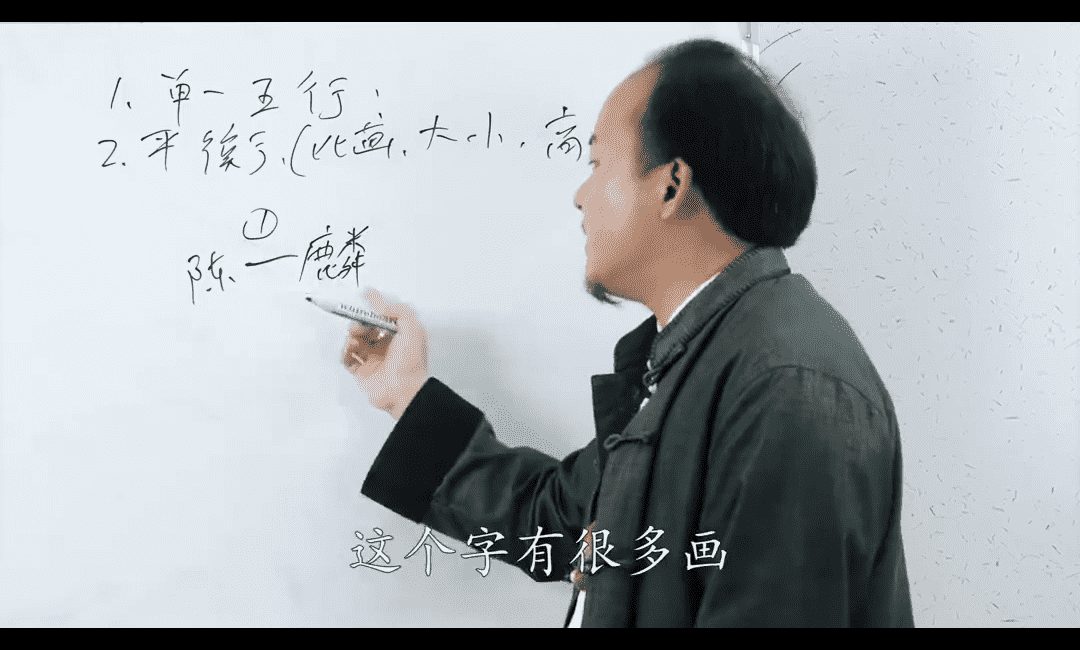 1. 单一五行.
2. 平衡了.(比画.大小.高
①
陈一麟
这个字有很多画